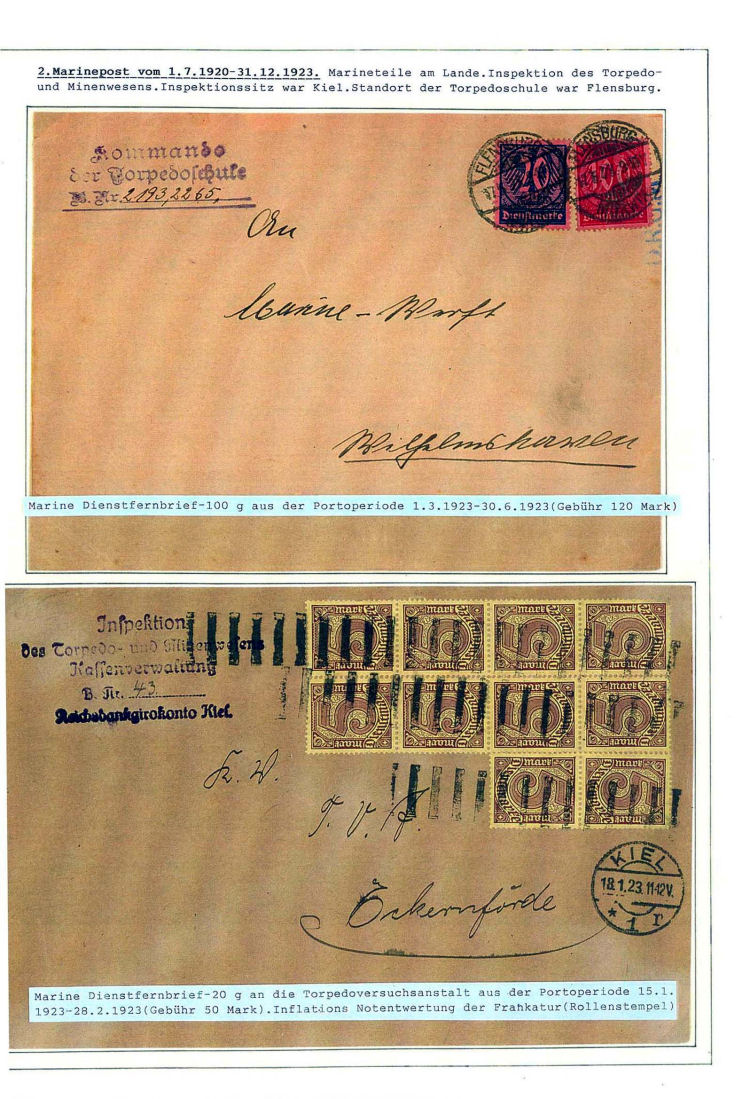 2.Marinepost vom 1.7.1920-31.12.1923. Marineteile am Lande.Inspektion des Torpedo-
und Minenwesens.Inspektionssitz war Kiel.Standort der Torpedoschule war Flensburg.
Kommando
der Torpedoschule
B. Nr. 2193,2265,
FLENSBURG
20
Dienstmarke
FLENSBURG
Dienstmarke
An
Marine-Werft
Wilhelmshaven
Marine Dienstfernbrief-100 g aus der Portoperiode 1.3.1923-30.6.1923(Gebühr 120 Mark)
Inspektion
des Torpedo- und Minenwesens
Kassenverwaltung
B. Nr. 43
Reichsbankgirokonto Kiel.
5 mark 5 mark 5 mark 5 mark
5 mark 5 mark 5 mark 5 mark
5 mark 5 mark
T. V. A.
Eckernförde
KIEL
18.1.23. 11-12V.
* 1 r
Marine Dienstfernbrief-20 g an die Torpedoversuchsanstalt aus der Portoperiode 15.1.
1923-28.2.1923(Gebühr 50 Mark).Inflations Notentwertung der Frankatur(Rollenstempel)